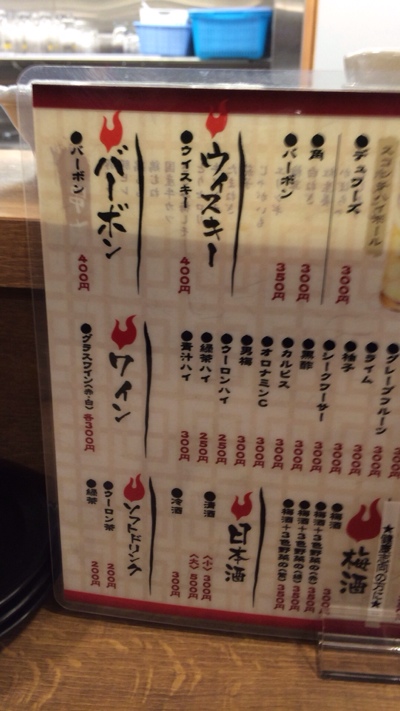 スコッチハイボール
●デュワーズ 300円
●角 300円
●バーボン 350円
ウイスキー
●ウイスキー 400円
バーボン
●バーボン 400円
●グレープフルーツ
●ライム 300円
●柚子 300円
●シークワーサー 300円
●黒酢 300円
●カルピス 300円
●オロナミンC 300円
●男梅 300円
●ウーロンハイ 250円
●緑茶ハイ 250円
●青汁ハイ 300円
ワイン
●グラスワイン(赤・白) 各300円
★健康志向の方に★
梅酒
●梅酒 300円
●梅酒+3色野菜の
●梅酒+3色野菜の
●梅酒+3色野菜の
日本酒
●清酒 <小> 300円
<大> 500円
●冷酒 300円
ソフトドリンク
●ウーロン茶 200円
●緑茶 200円